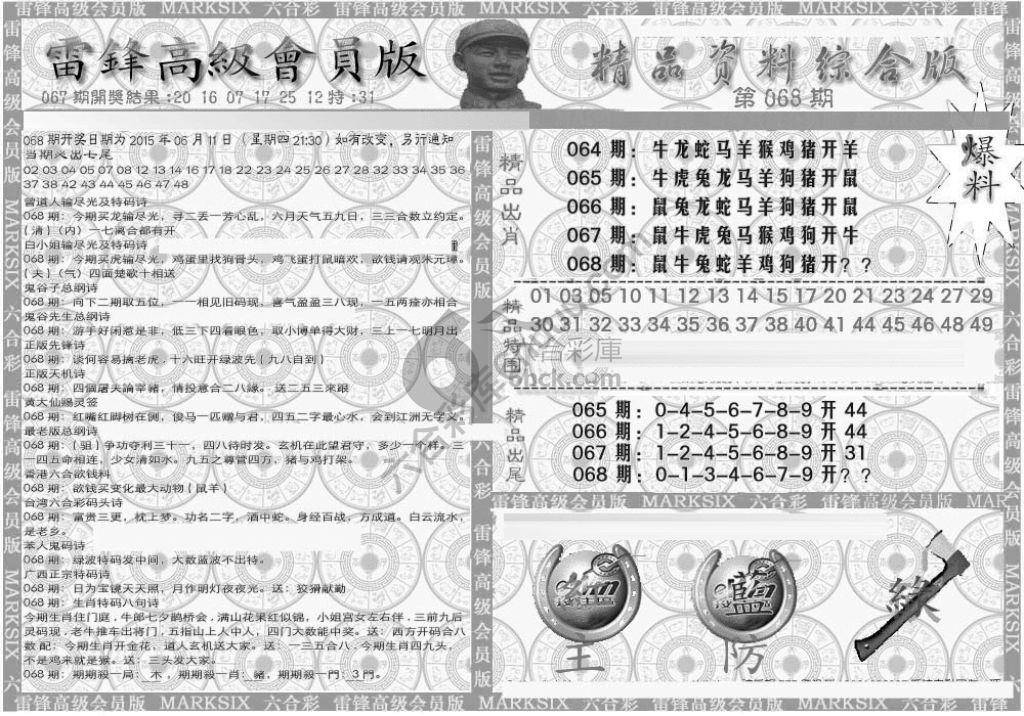 雷锋高级会员版 MARKSIX 六合彩 雷锋高级会员版 MARKSIX 六合彩 雷锋高级会员版 MARKSIX 六合彩 雷锋
雷鋒高級會員版
067期開獎結果:20 16 07 17 25 12特:31
精品资料综合版
第068期
爆料
068期开奖日期为2015年06月11日(星期四21:30)如有改变,另行通知
当期必出七尾
02 03 04 05 07 08 12 13 14 16 17 18 22 23 24 25 26 27 28 32 33 34 35 36
37 38 42 43 44 45 46 47 48
曾道人输尽光及特码诗
068期:今期买龙输尽光,寻二丢一芳心乱,六月天气五九日,三三合数立约定。
(清)(内)一七离合都有开
白小姐输尽光及特码诗
068期:今期买虎输尽光,鸡蛋里找狗骨头,鸡飞蛋打鼠暗欢,欲钱请观朱元璋。
(夫)(气)四面楚歌十相送
鬼谷子总纲诗
068期:向下二期取五位,一一相见旧码现,喜气盈盈三八现,一五两痊亦相合
鬼谷先生总纲诗
068期:游手好闲惹是非,低三下四看眼色,取小博单得大财,三上一七明月出
正版先锋诗
068期:谈何容易擒老虎.十六旺开绿波先(九八自到)
正版天机诗
068期:四個屠夫論宰豬,情投意合二八緣。送二五三來跟
黄大仙赐灵签
068期:红嘴红脚树在倒,俊马一匹赠与君,四五二字最心水,会到江洲无学义。
最老版总纲诗
068期:(驵)争功夺利三十一,四八待时发。玄机在此望君守,多少一个样。三
一四五命相连,少女清如水。九五之尊管四方,猪与鸡打架。
香港六合欲钱料
068期:欲钱买变化最大动物(鼠羊)
台湾六合彩码头诗
068期:富贵三更,枕上梦。功名二字,酒中蛇。身经百战,方成道。白云流水,
是老乡。
苯人鬼码诗
068期:绿波特码发中间,大数蓝波不出特。
广西正宗特码诗
068期:日为宝镜天天照,月作明灯夜夜光。送:狡猾献勤
068期:生肖特码八句诗
今期生肖住门庭.牛郎七夕鹊桥会.满山花果红似锦,小姐宫女左右伴.三前九后
灵码现.老牛推车出将门.五指山上人中人,四门大数能中奖。送:西方开码合八
数配:今期生肖开金花,道人玄机送大家。送:一三五合八.今期生肖四九头,
不是鸡来就是猴。送:三头发大家。
068期:期期殺一局:木,期期殺一肖:豬,期期殺一門:3門。
精品出肖
064期:牛龙蛇马羊猴鸡猪开羊
065期:牛虎兔龙马羊狗猪开鼠
066期:鼠兔龙蛇马羊狗猪开鼠
067期:鼠牛虎兔马猴鸡狗开牛
068期:鼠牛兔蛇羊鸡狗猪开??
精品特围
01 03 05 10 11 12 13 14 15 17 20 21 23 24 27 29
30 31 32 33 34 35 36 37 38 40 41 44 45 46 48 49
六合彩库
精品出尾
065期:0-4-5-6-7-8-9开44
066期:1-2-4-5-6-7-8-9开44
067期:1-2-4-5-6-8-9开31
068期:0-1-3-4-6-7-9开??
雷锋高级会员版 MARKSIX 六合彩 雷锋高级会员版
藍
綠
主
防
雷锋高级会员版 MARKSIX 六合彩 雷锋高级会员版 MARKSIX 六合彩 雷锋高级会员版 MARKSIX 六合彩 雷锋